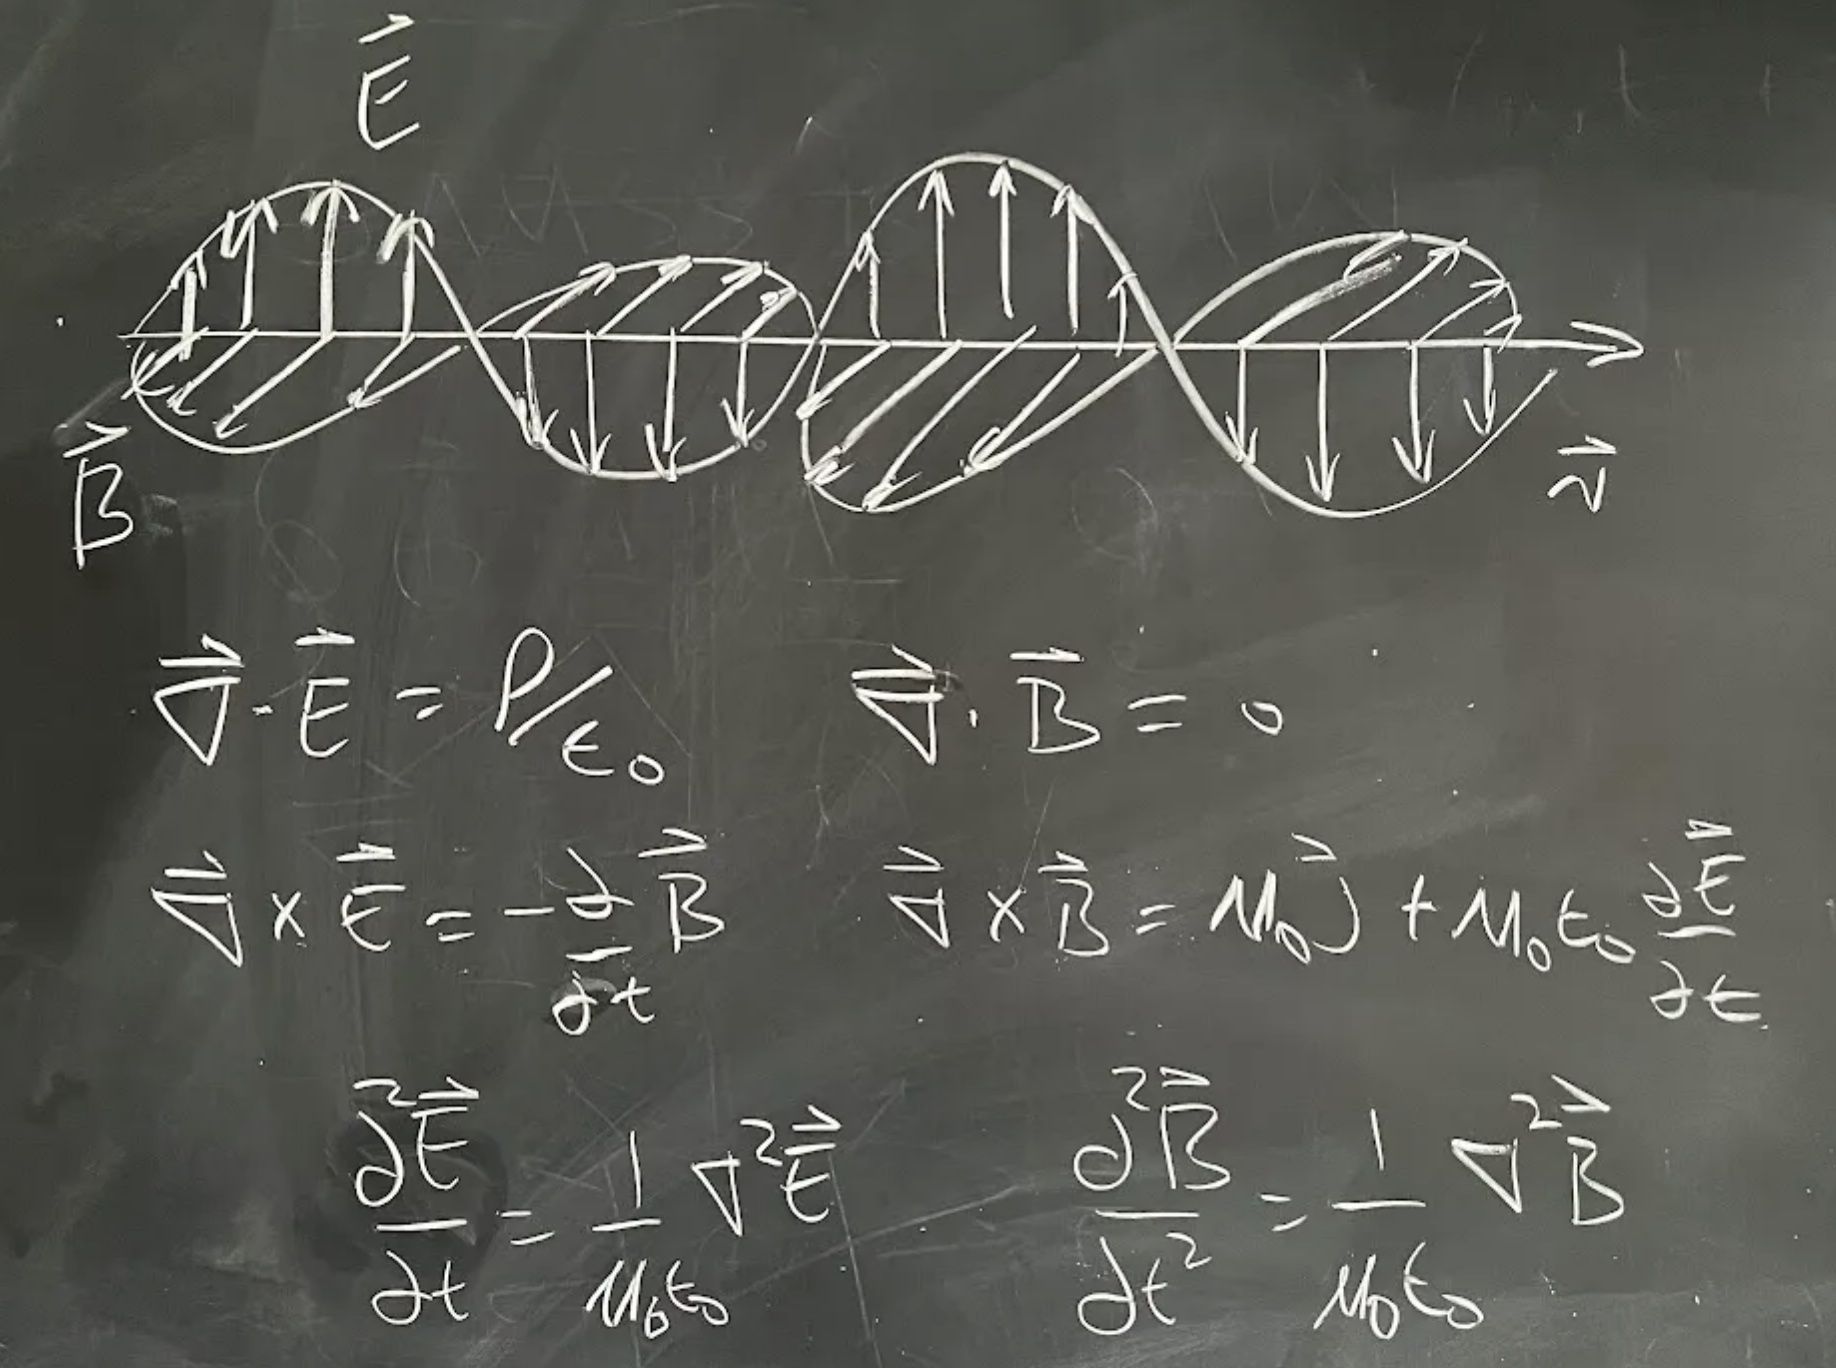 E⃗
B⃗
v⃗
∇⃗ · E⃗ = ρ/ε₀    ∇⃗ · B⃗ = 0
∇⃗ × E⃗ = -∂/∂t B⃗    ∇⃗ × B⃗ = μ₀J⃗ + μ₀ε₀ ∂E⃗/∂t
∂²E⃗/∂t = 1/μ₀ε₀ ∇²E⃗    ∂²B⃗/∂t² = 1/μ₀ε₀ ∇²B⃗